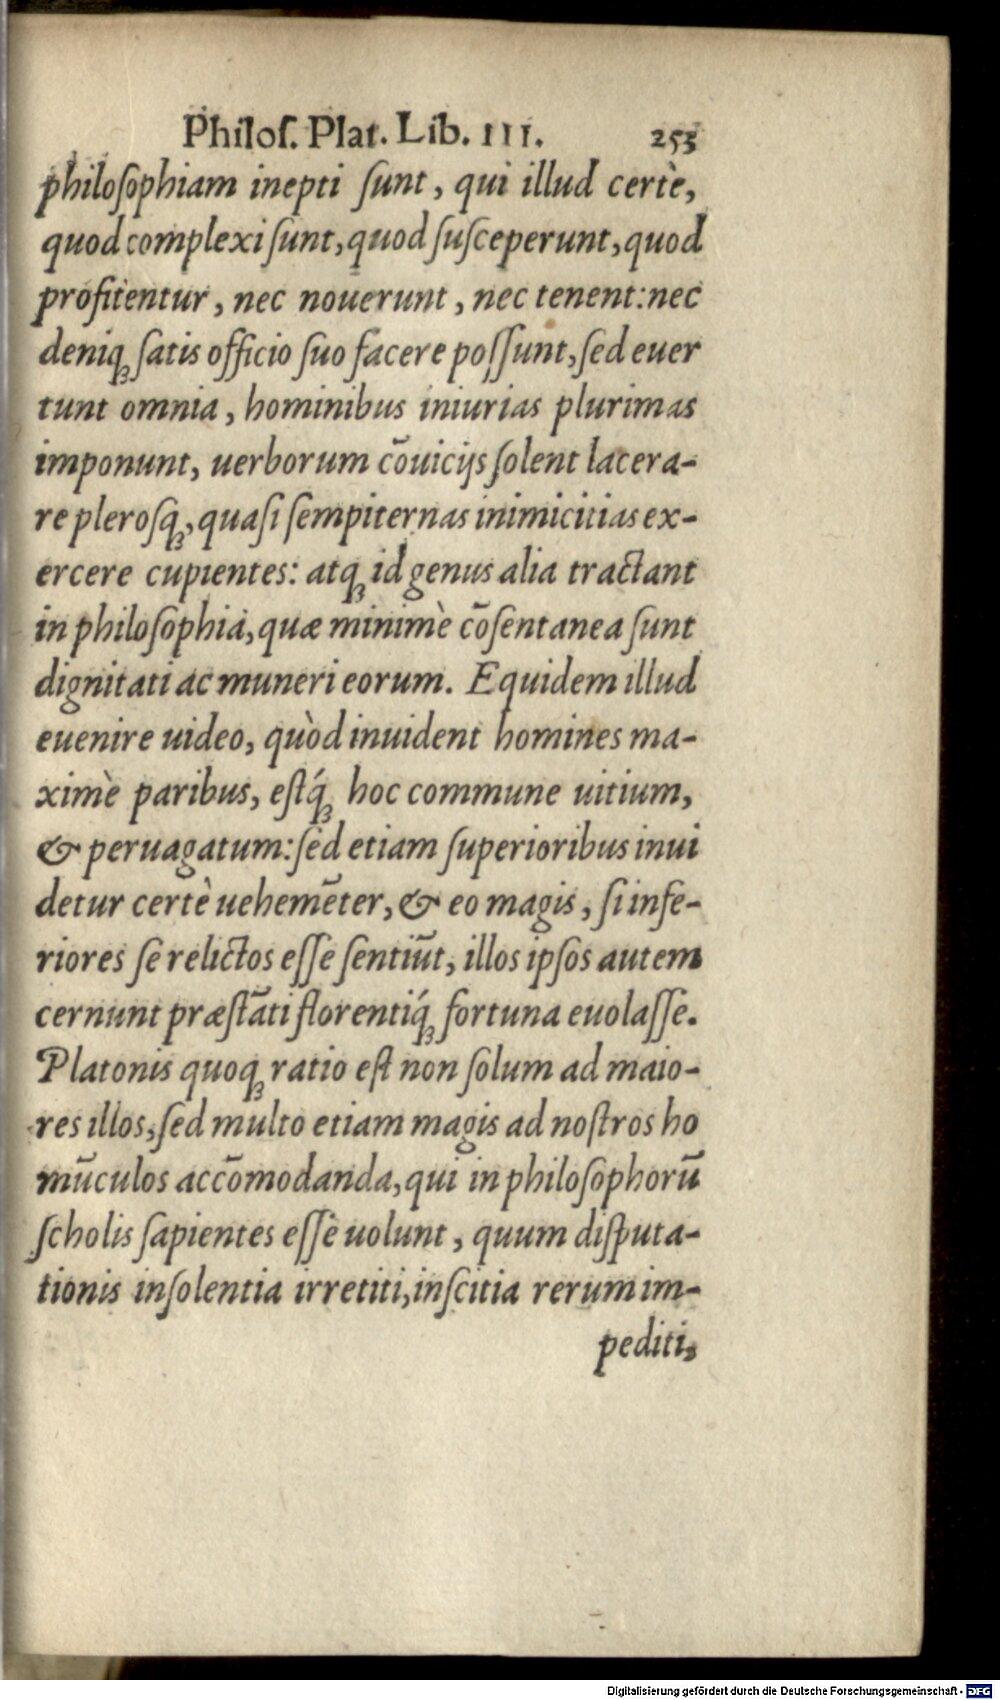 Philoſ. Plat. Lib. III. 253
philoſophiam inepti ſunt, qui illud certè,
quod complexi ſunt, quod ſuſceperunt, quod
profitentur, nec nouerunt, nec tenent: nec
deniq; ſatis officio ſuo facere poſſunt, ſed euer
tunt omnia, hominibus iniurias plurimas
imponunt, uerborum cōuicijs ſolent lacera-
re pleroſq;, quaſi ſempiternas inimicitias ex-
ercere cupientes: atq; id genus alia tractant
in philoſophia, quæ minimè cōſentanea ſunt
dignitati ac muneri eorum. Equidem illud
euenire uideo, quòd inuident homines ma-
ximè paribus, eſtq́; hoc commune uitium,
& peruagatum: ſed etiam ſuperioribus inui
detur certè uehemēter, & eo magis, ſi infe-
riores ſe relictos eſſe ſentiūt, illos ipſos autem
cernunt præſtāti florentiq́; fortuna euolaſſe.
Platonis quoq; ratio eſt non ſolum ad maio-
res illos, ſed multo etiam magis ad noſtros ho
mūculos accōmodanda, qui in philoſophorū
ſcholis ſapientes eſſe uolunt, quum diſputa-
tionis inſolentia irretiti, inſcitia rerum im-
pediti,
Digitalisierung gefördert durch die Deutsche Forschungsgemeinschaft - DFG